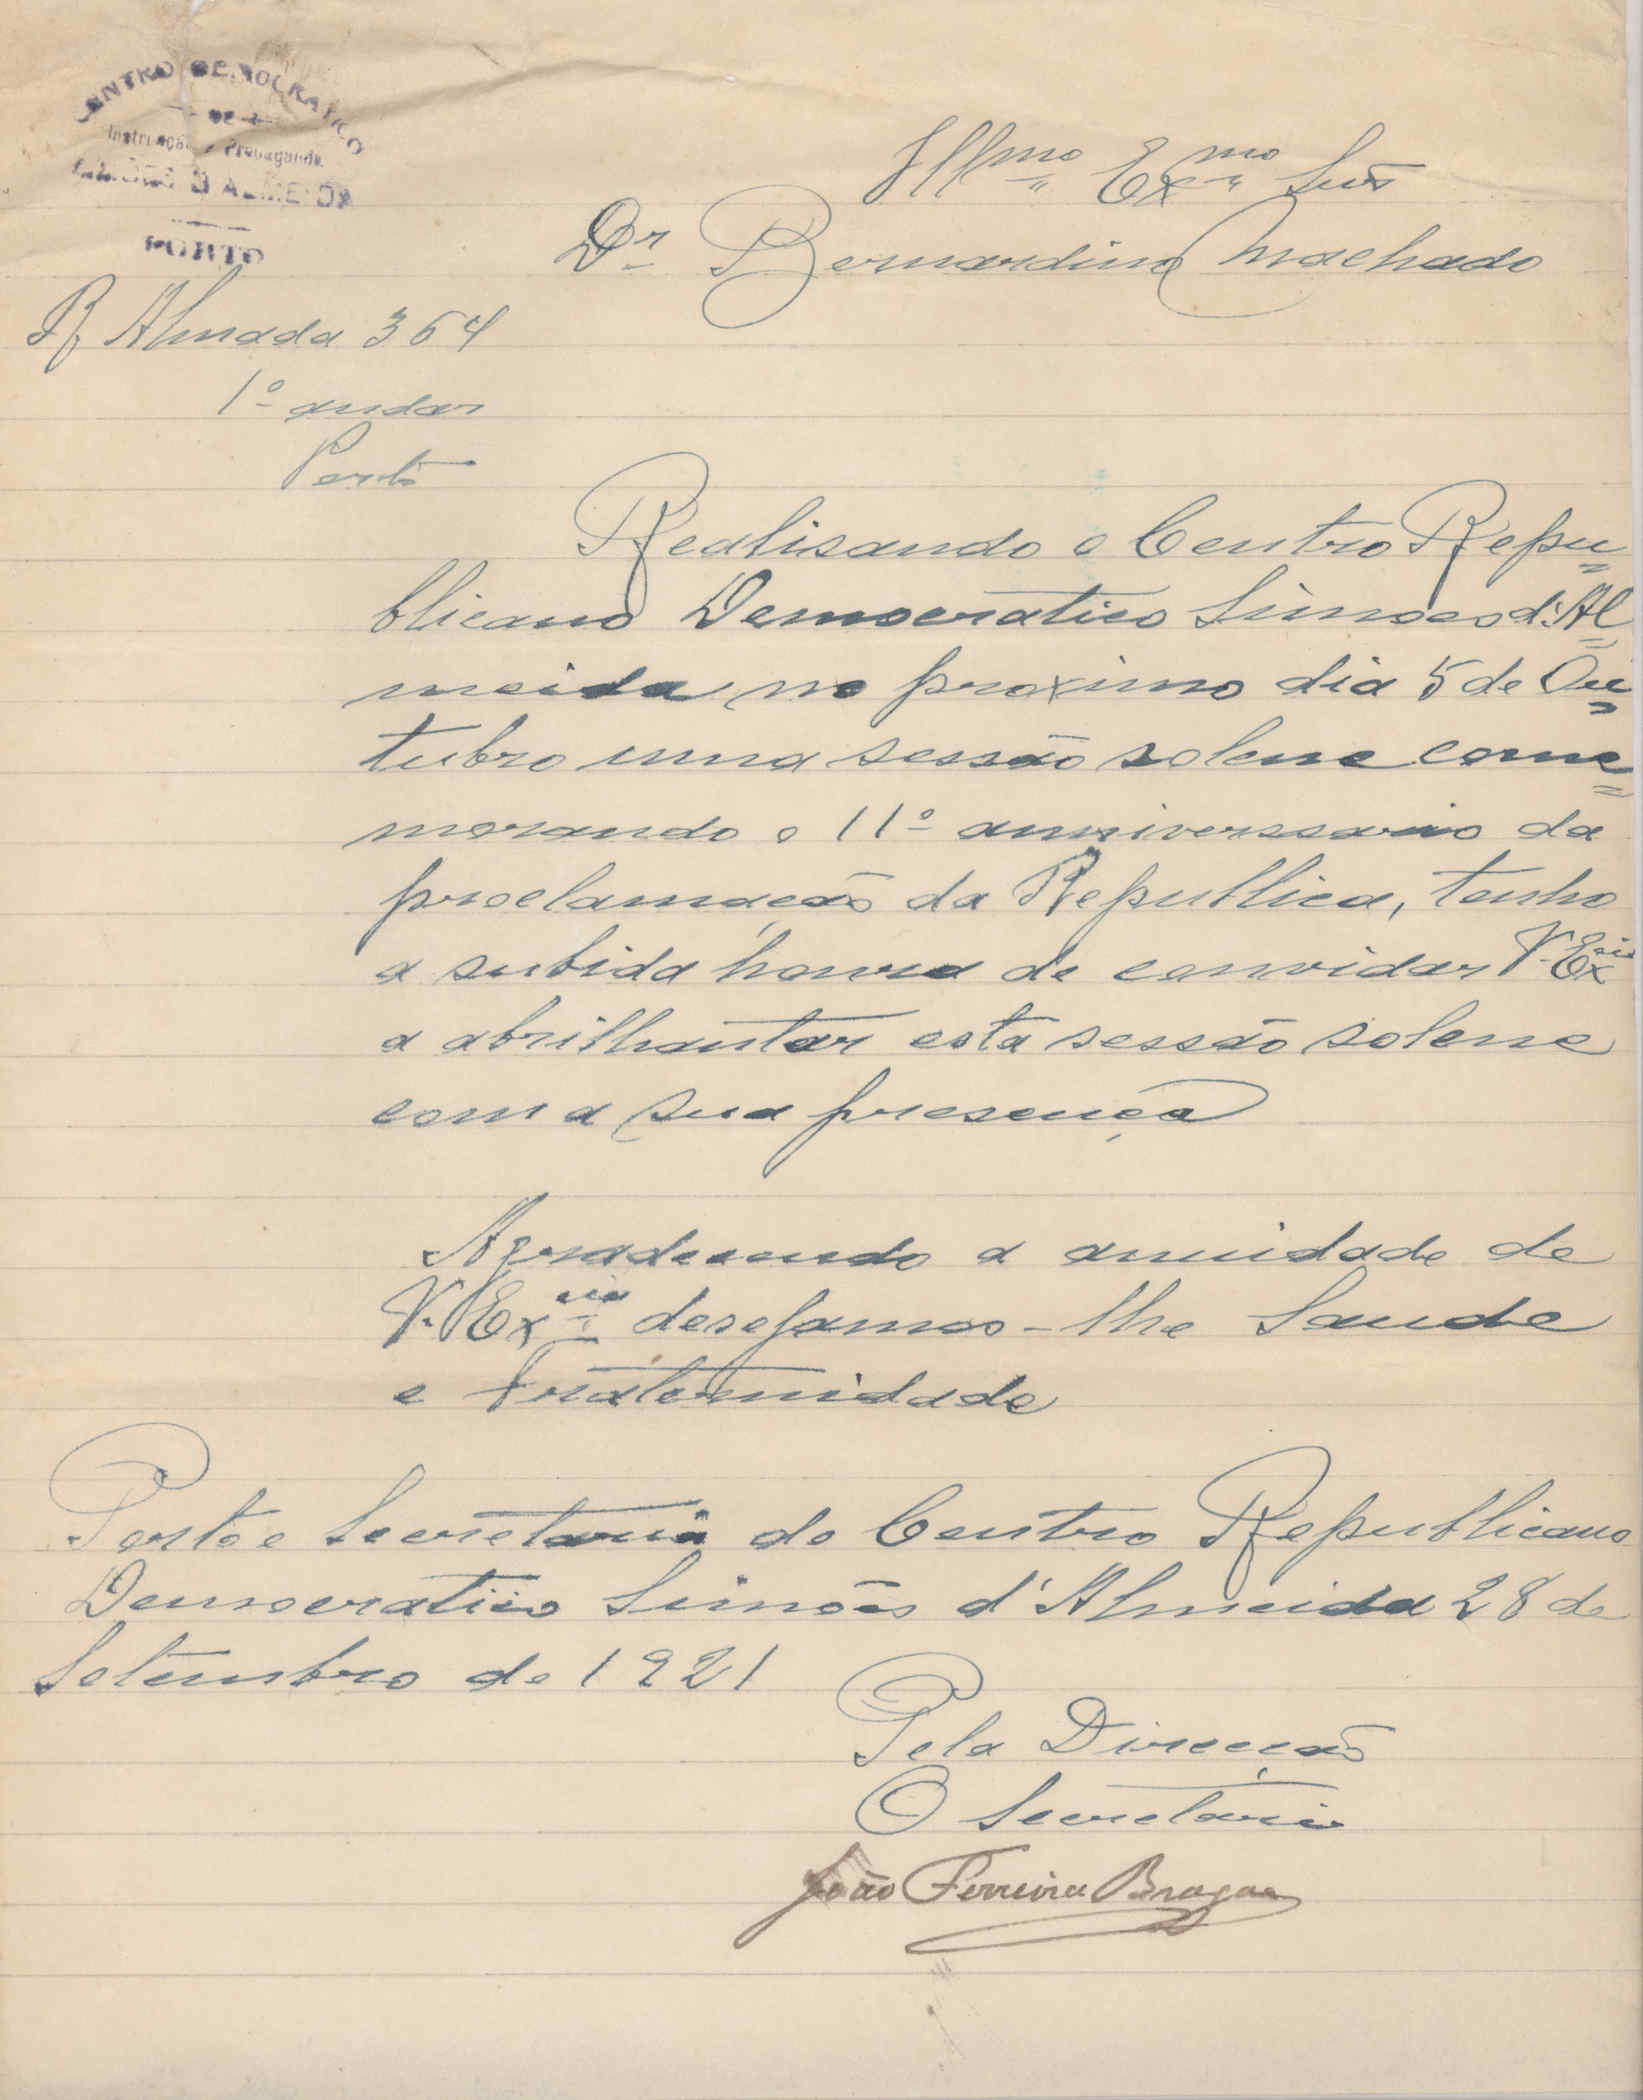 CENTRO DEMOCRATICO
DE
Instrução e Propaganda
SIMÕES D'ALMEIDA
PORTO
Illmo Exmo Snr
Dr Bernardino Machado
R Almada 364
1º andar
Porto
Realisando o Centro Repu=
blicano Democratico Simoes d'Al=
meida no proximo dia 5 de Ou=
tubro uma sessão solene come=
morando o 11º anniverssario da
proclamação da Republica, tenho
a subida honra de convidar V. Excia
a abrilhantar esta sessão solene
com a sua presença
Agradecendo a anuidade de
V. Excia desejamos-lhe Saude
e Fraternidade
Porto e Secretaria do Centro Republicano
Democratico Simões d'Almeida 28 de
Setembro de 1921
Pela Direcção
O Secretario
João Ferreira Braga